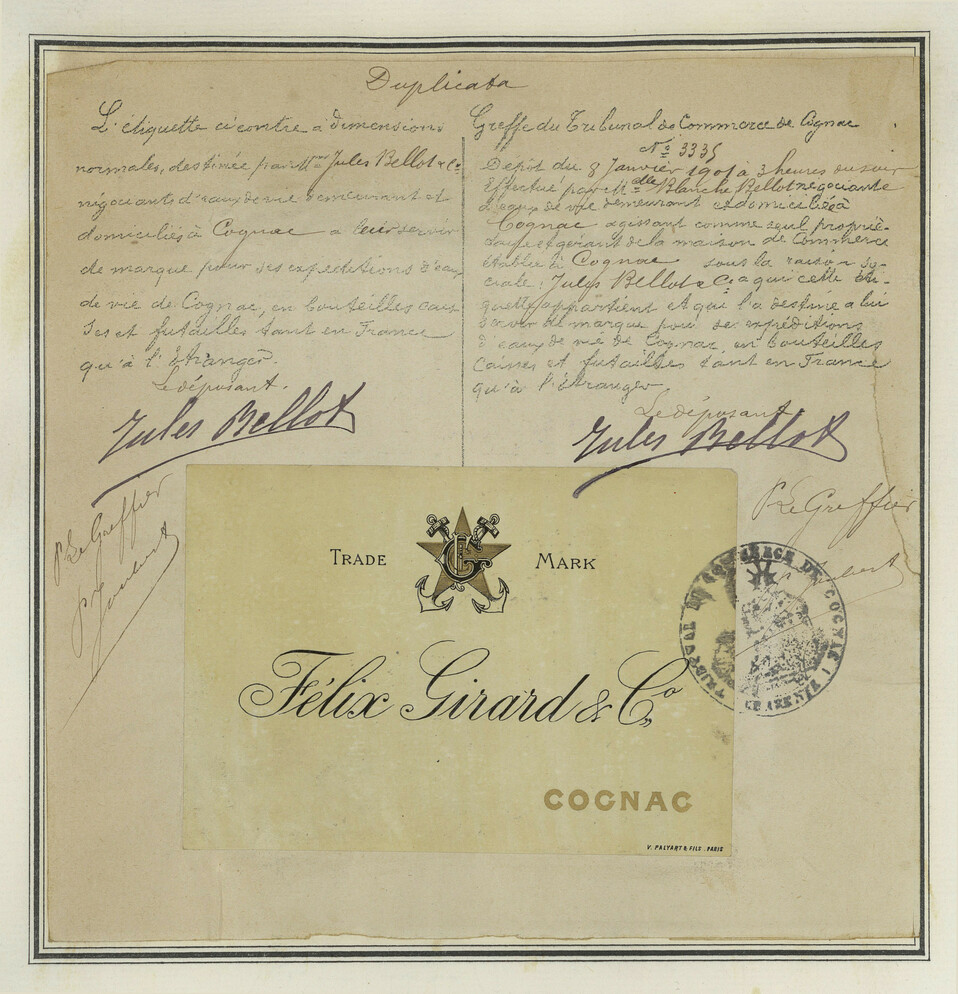 Duplicata
L'étiquette ci contre à dimensions
normales, destinée par Mrs Jules Bellot & Co
négociants d'eaux de vie demeurant et
domiciliés à Cognac a leur servir
de marque pour ses expéditions d'eaux
de vie de Cognac, en bouteilles cais
ses et futailles tant en France
qu'à l'étranger.
Le déposant.
Jules Bellot
Pr Le Greffier
Greffe du Tribunal de Commerce de Cognac
No 3335
Dépôt du 8 Janvier 1901 à 3 heures du soir
Effectué par Mdlle Blanche Bellot négociante
d'eaux de vie demeurant et domiciliée à
Cognac agissant comme seul proprié-
taire et gérant de la maison de Commerce
établie à Cognac sous la raison so-
ciale: Jules Bellot & Co a qui cette éti-
quette appartient et qui l'a destiné a lui
servir de marque pour ses expéditions
d'eaux de vie de Cognac en bouteilles
caisses et futailles tant en France
qu'à l'étranger.
Le déposant
Jules Bellot
Pr Le Greffier
TRADE MARK
G
Félix Girard & Co
COGNAC
V. PALYART & FILS. PARIS
TRIBUNAL DE COMMERCE DE COGNAC